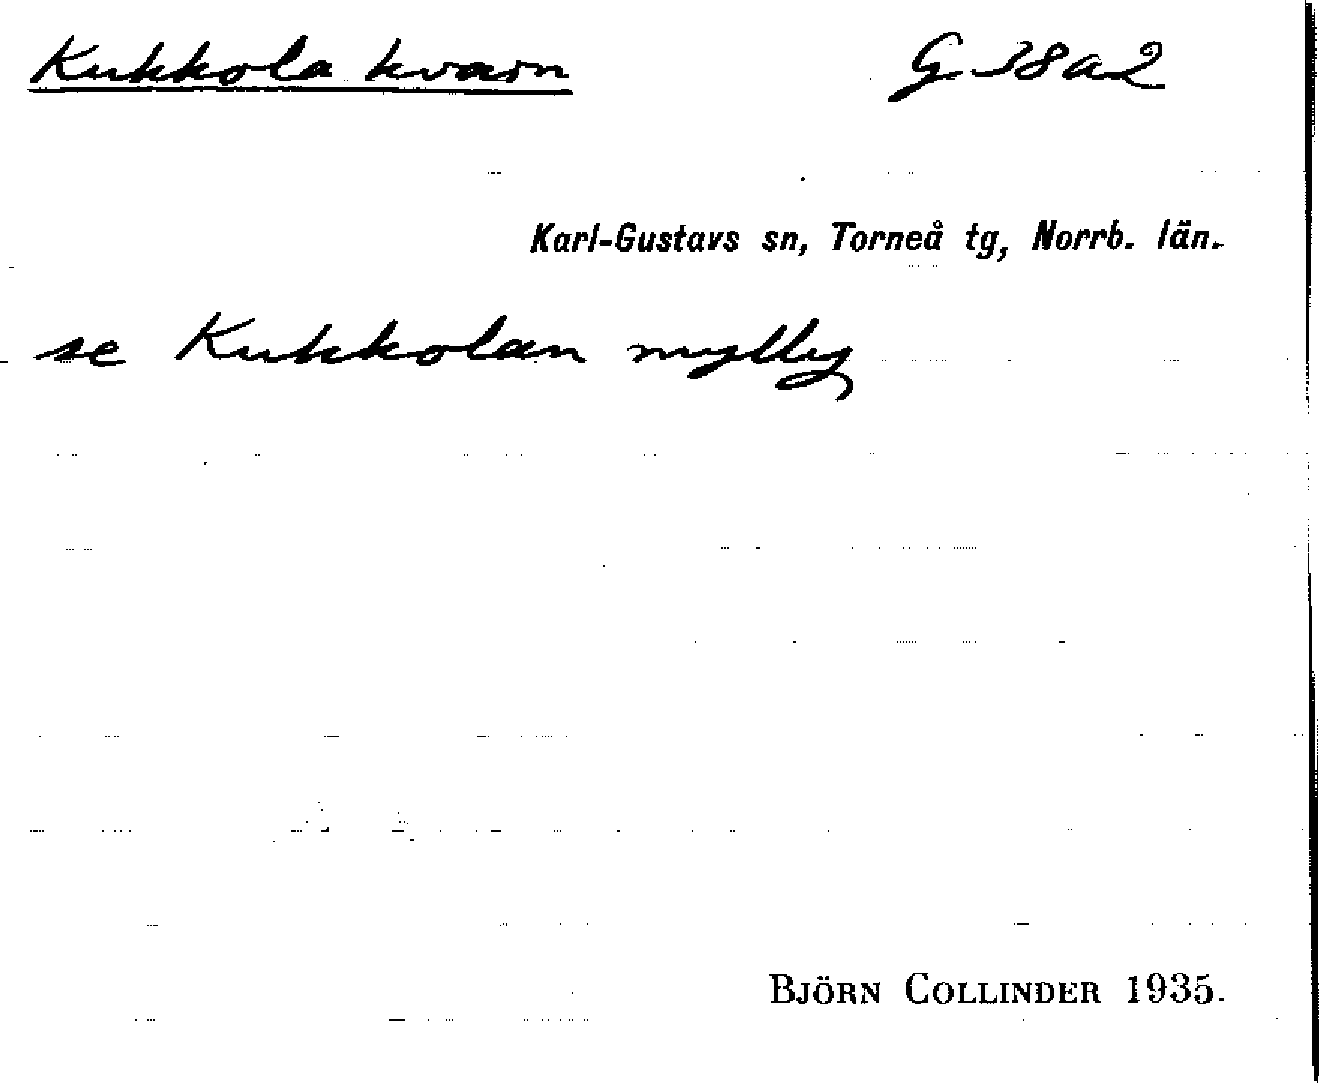 Kukkola kvarn G. 38 a 2
Karl-Gustavs sn, Torneå tg, Norrb. län.
se Kukkolan mylly
BJÖRN COLLINDER 1935.